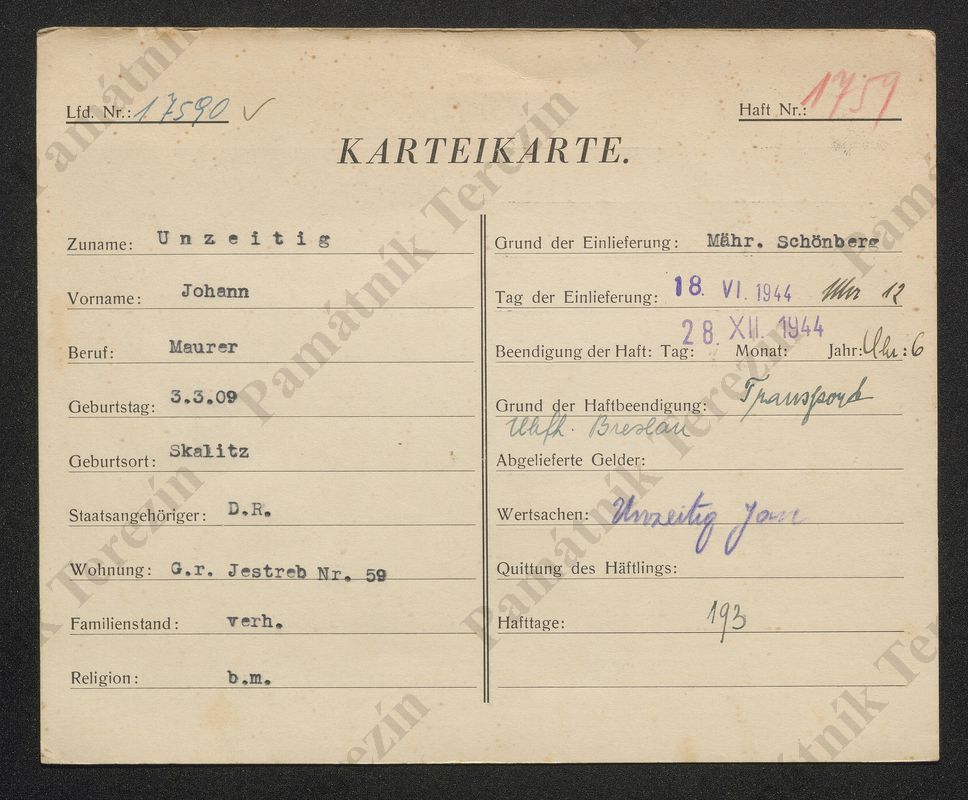 Lfd. Nr.: 17590 ✓
Haft Nr.: 1759
KARTEIKARTE.
Zuname: Unzeitig
Vorname: Johann
Beruf: Maurer
Geburtstag: 3.3.09
Geburtsort: Skalitz
Staatsangehöriger: D.R.
Wohnung: G.r. Jestreb Nr. 59
Familienstand: verh.
Religion: b.m.
Grund der Einlieferung: Mähr. Schönberg
Tag der Einlieferung: 18. VI. 1944 Uhr 12
28. XII. 1944
Beendigung der Haft: Tag: Monat: Jahr: Uhr: 6
Grund der Haftbeendigung: Transport
Breslau
Abgelieferte Gelder:
Wertsachen: Unzeitig Jan
Quittung des Häftlings:
Hafttage: 193
Památník Terezín